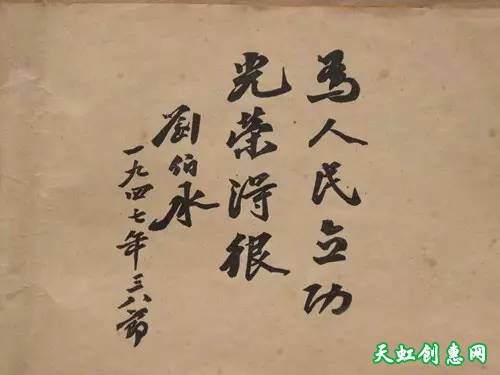 為人民立功
光榮得很
劉伯承
一九四七年三八節
天虹创惠网